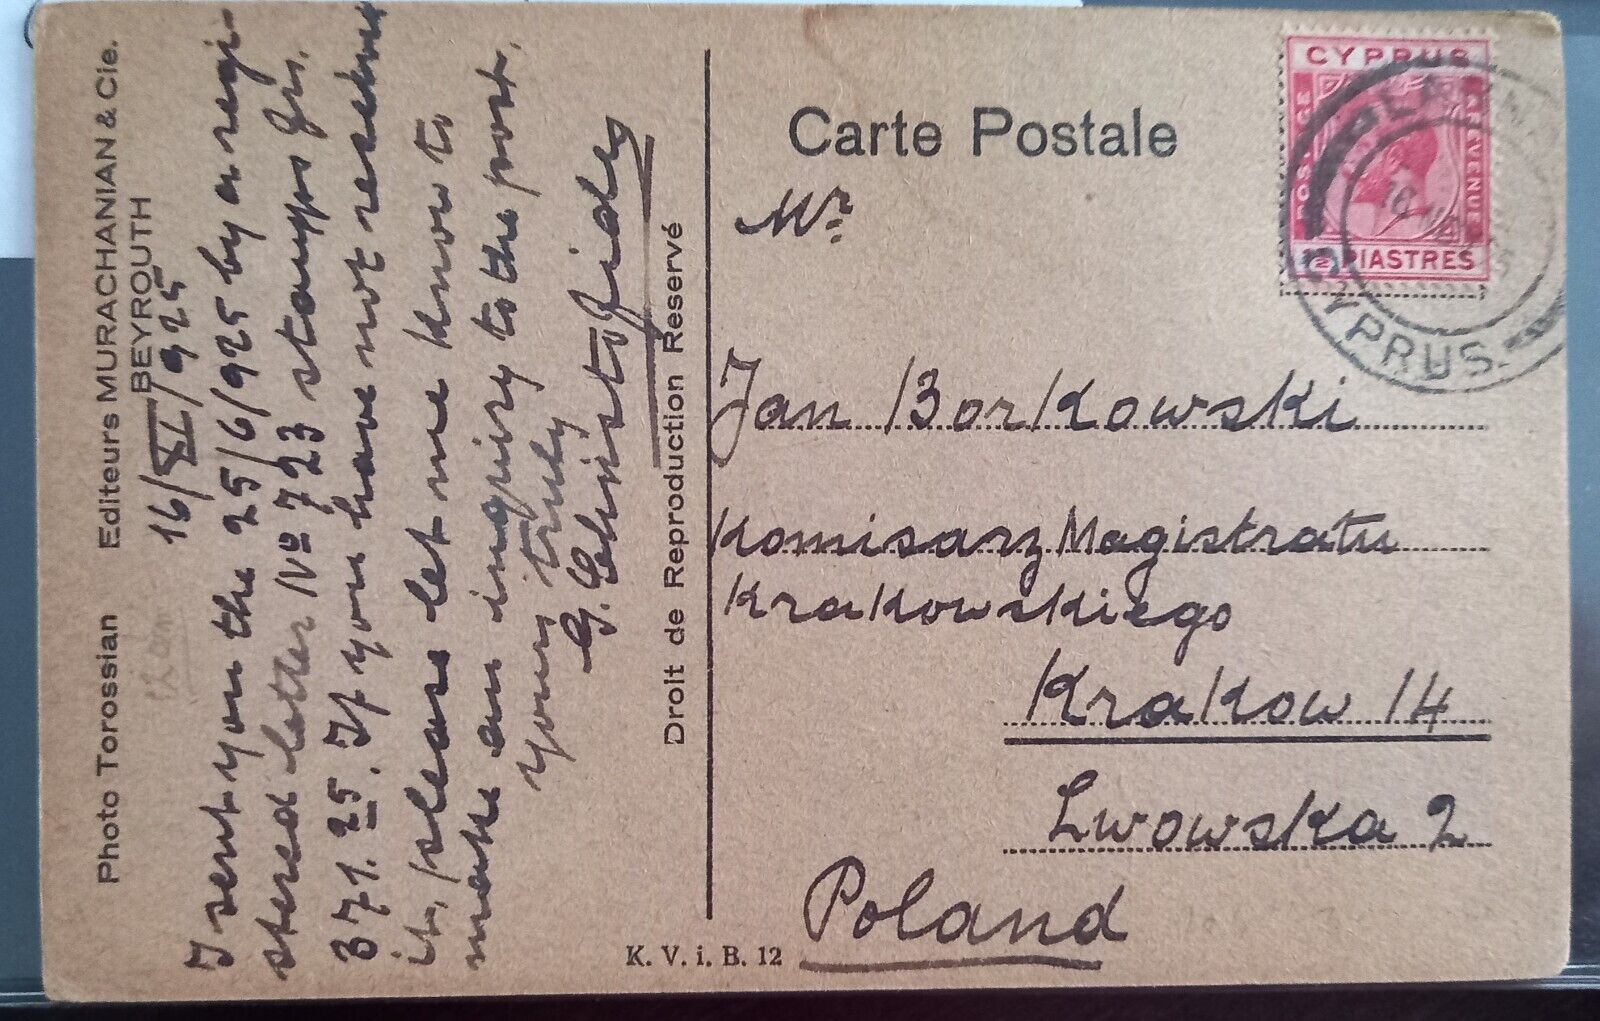 Photo Torossian Editeurs MURACHANIAN & Cie.
BEYROUTH
16/XI/925
I sent you the 25/6/925 by a regi-
stered letter No 723 stamps frs.
371.25. If you have not received
it, please let me know to
make an inquiry to the post.
Yours truly
G. Christofides
Droit de Reproduction Reservé
K. V. i. B. 12
Carte Postale
CYPRUS
POSTAGE
& REVENUE
PIASTRES
CYPRUS
Mr.
Jan Borkowski
Komisarz Magistratu
Krakowskiego
Krakow 14
Lwowska 2
Poland